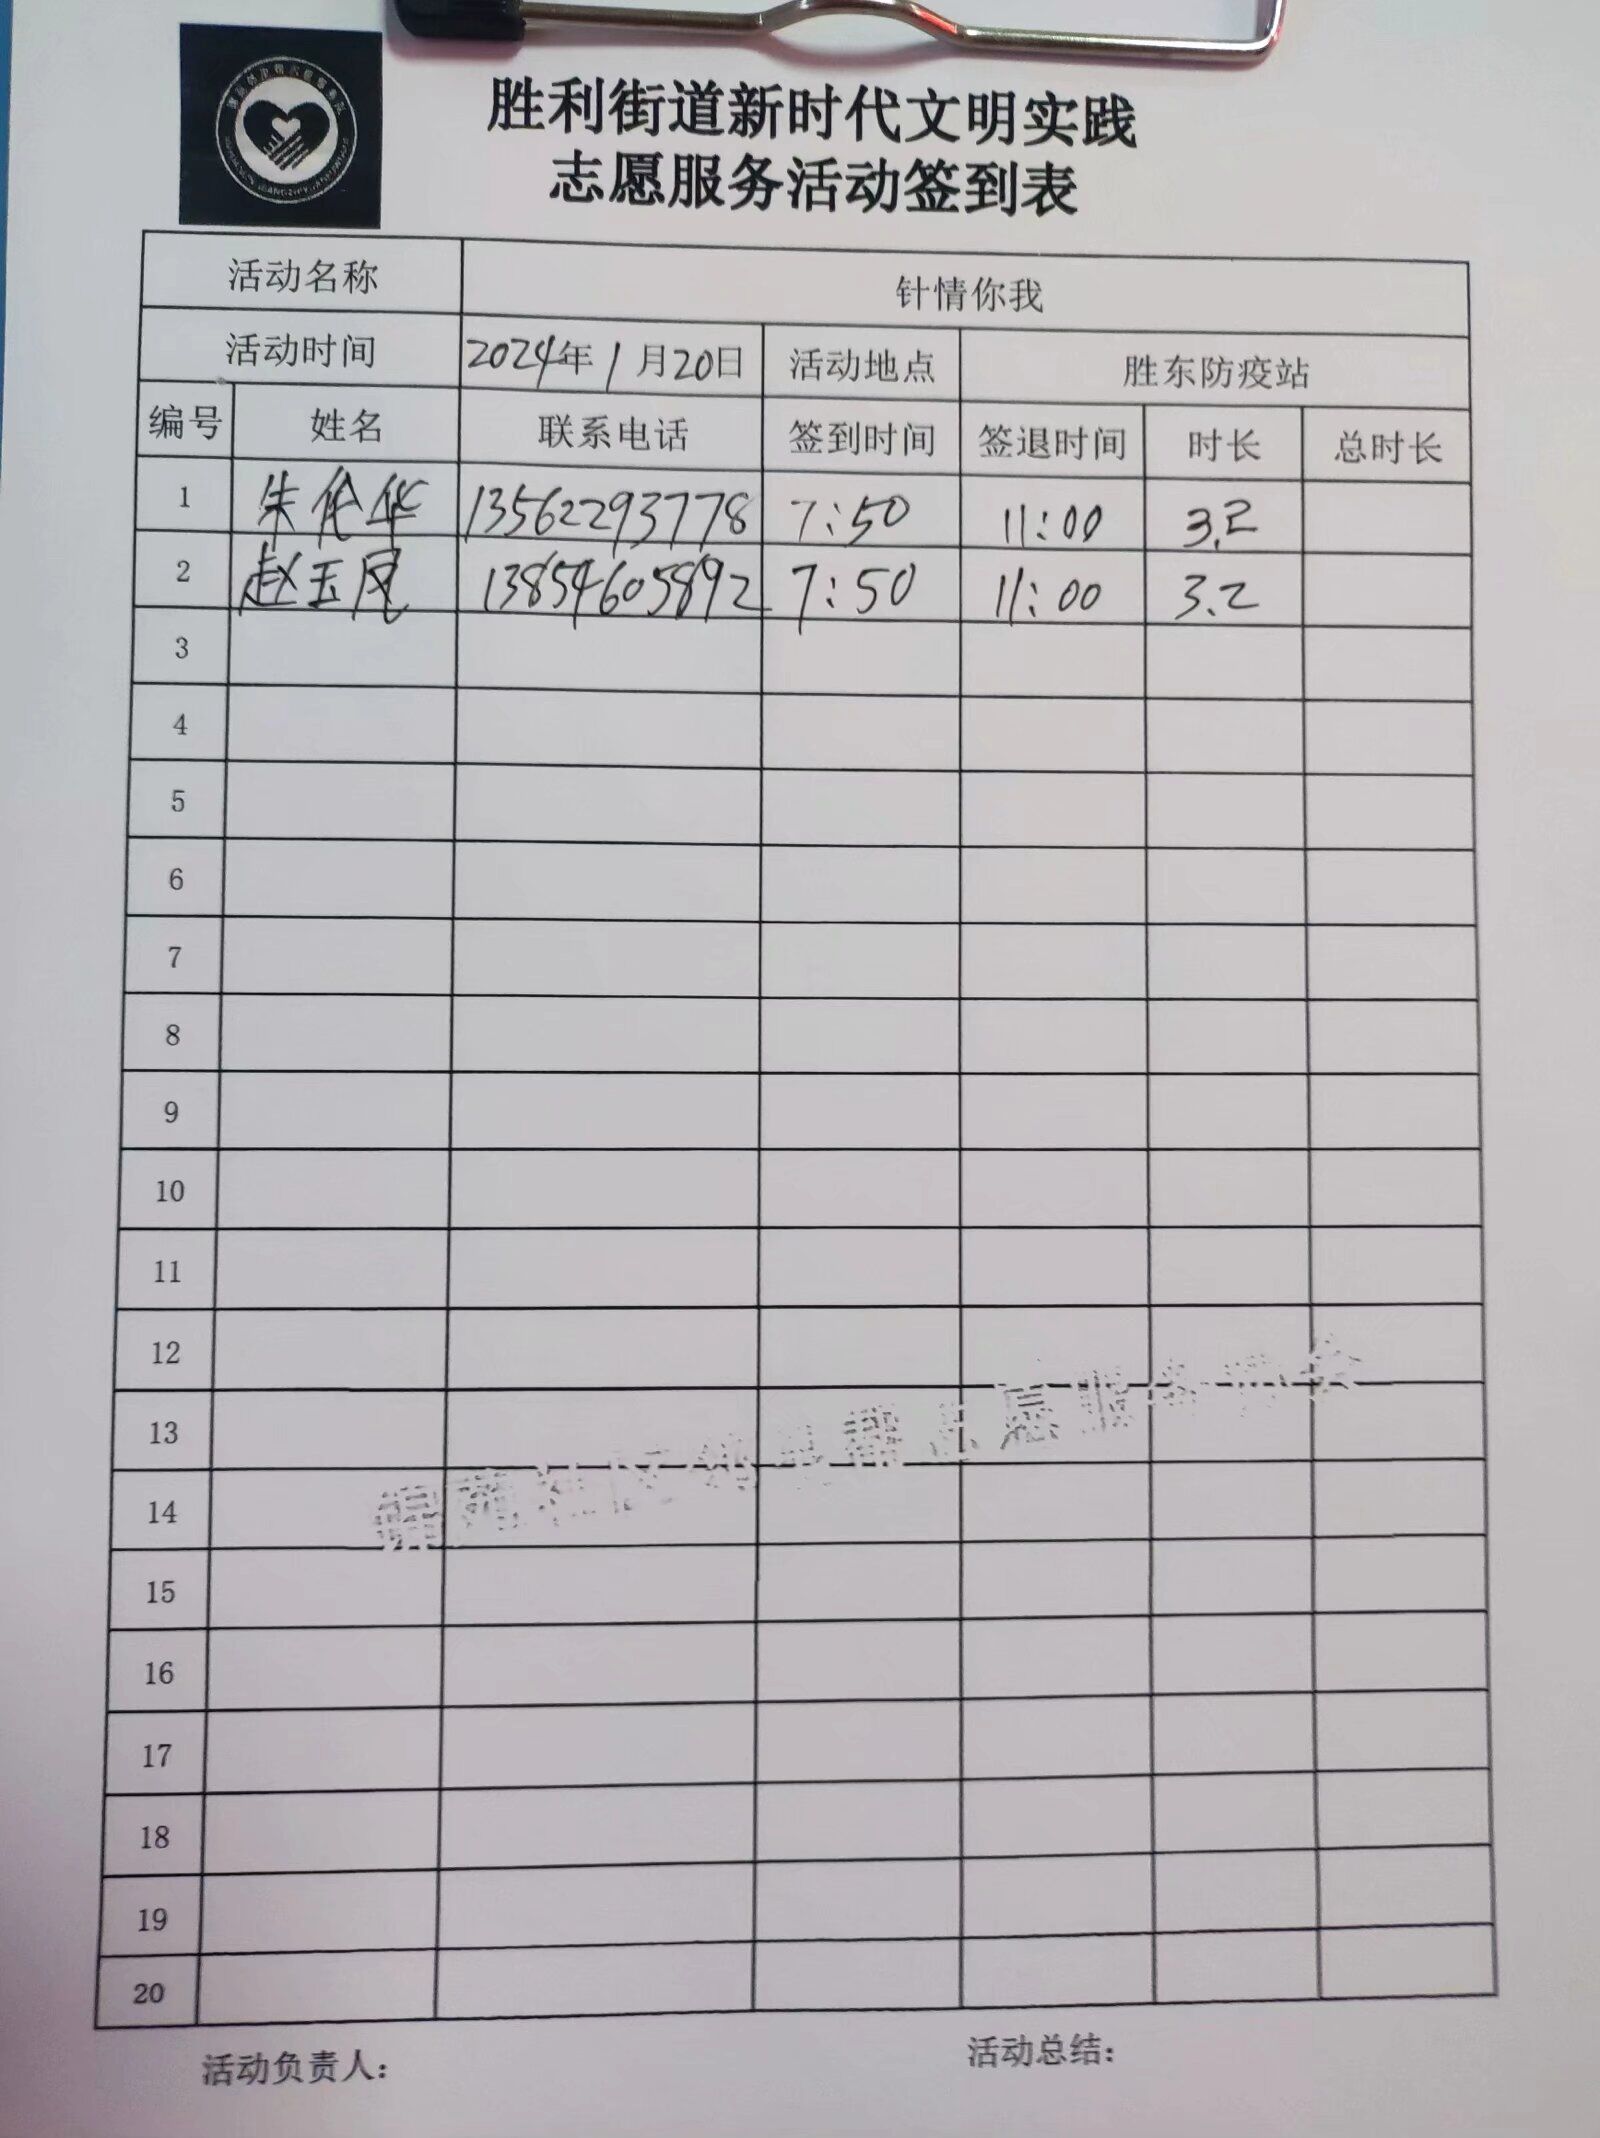 胜利街道新时代文明实践
志愿服务活动签到表
活动名称 针情你我
活动时间 2024年1月20日 活动地点 胜东防疫站
编号 姓名 联系电话 签到时间 签退时间 时长 总时长
1 朱伦华 13562293778 7:50 11:00 3.2
2 赵玉凤 13854605892 7:50 11:00 3.2
3
4
5
6
7
8
9
10
11
12
13
14
15
16
17
18
19
20
活动负责人: 活动总结: